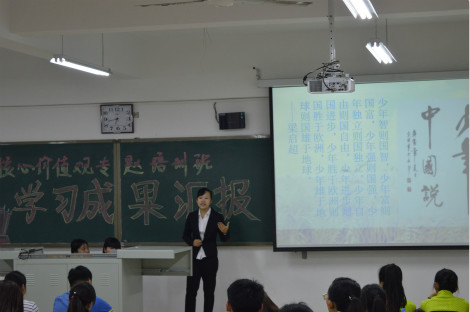 核心价值观专题培训班
学习成果汇报
少年
中國說
少年智则国智，少年富则
国富，少年强则国强，少
年独立则国独立，少年自
由则国自由，少年进步则
国进步，少年胜于欧洲则
国胜于欧洲，少年雄于地
球则国雄于地球。
——梁启超